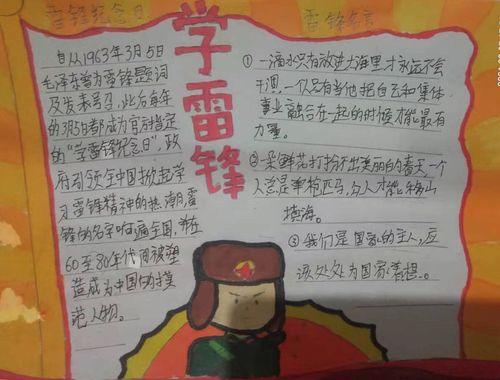 雷锋纪念日
自从1963年3月5日
毛泽东曾为雷锋题词
及发表号召，此后每年
的3月5日都成为官方指定
的“学雷锋纪念日”，政
府引领全中国掀起学
习雷锋精神的热潮，雷
锋的名字响遍全国，并在
60至80年代间被塑
造成为中国的模
范人物。
学雷锋
雷锋名言
①一滴水只有放进大海里才永远不会
干涸，一个人只有当他把自己和集体
事业融合在一起的时候才能最有
力量。
②一朵鲜花打扮不出美丽的春天，一个
人总是单枪匹马，众人才能移山
填海。
③我们是国家的主人，应
该处处为国家着想。